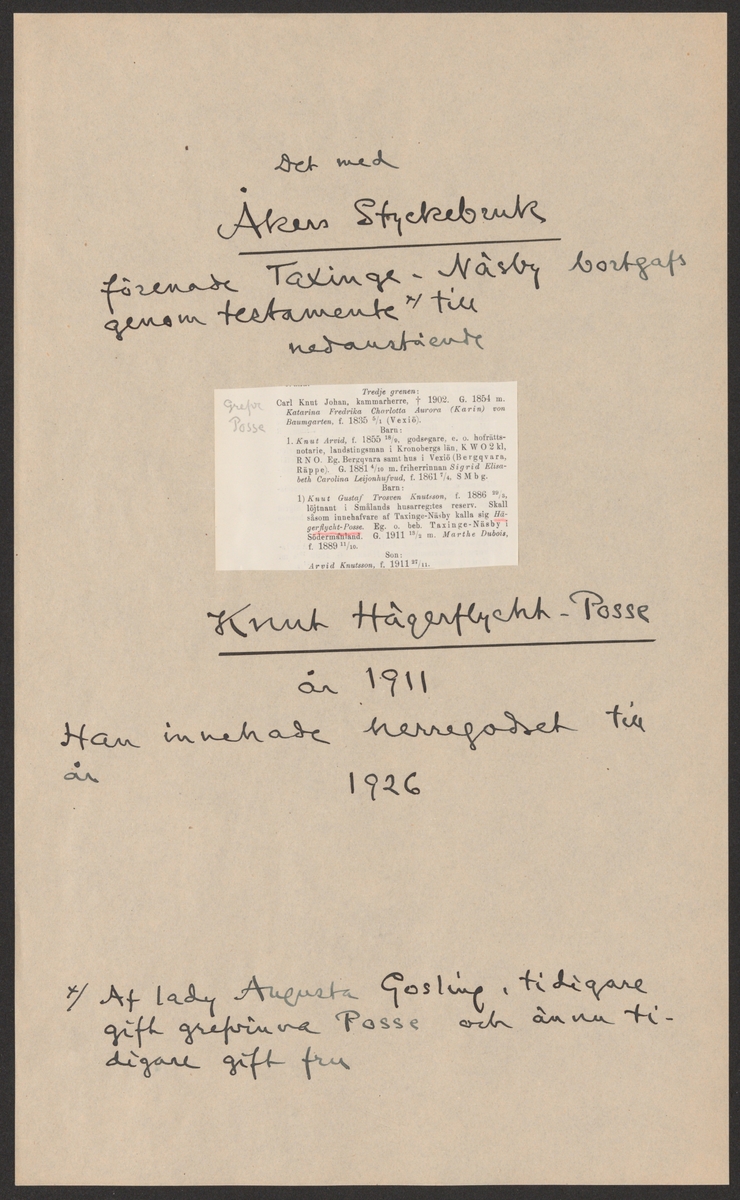 Det med
Åkers Styckebruk
förenade Taxinge-Näsby bortgafs
genom testamente x/ till
nedanstående
Grefv.
Posse
Tredje grenen:
Carl Knut Johan, kammarherre, † 1902. G. 1854 m.
Katarina Fredrika Charlotta Aurora (Karin) von
Baumgarten, f. 1835 5/1 (Vexiö).
Barn:
1. Knut Arvid, f. 1855 18/9, godsegare, e. o. hofrätts-
notarie, landstingsman i Kronobergs län, K W O 2 kl,
R N O. Eg. Bergqvara samt hus i Vexiö (Bergqvara,
Räppe). G. 1881 4/10 m. friherrinnan Sigrid Elisa-
beth Carolina Leijonhufvud, f. 1861 7/4. S M b g.
Barn:
1) Knut Gustaf Trosven Knutsson, f. 1886 22/5,
löjtnant i Smålands husarreg:tes reserv. Skall
såsom innehafvare af Taxinge-Näsby kalla sig Hä-
gerflycht-Posse. Eg. o. beb. Taxinge-Näsby i
Södermanland. G. 1911 12/2 m. Marthe Dubois,
f. 1889 11/10.
Son:
Arvid Knutsson, f. 1911 27/11.
Knut Hägerflycht-Posse
år 1911
Han innehade herregodset till
år 1926
x/ Af lady Augusta Gosling, tidigare
gift grefvinna Posse och ännu ti-
digare gift fru